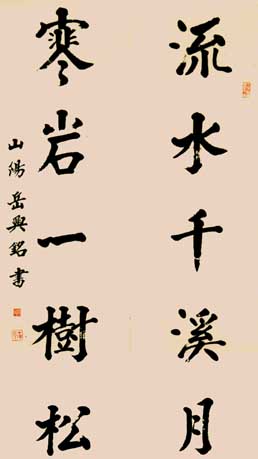 流水千溪月
寒岩一樹松
山陽岳興銘書